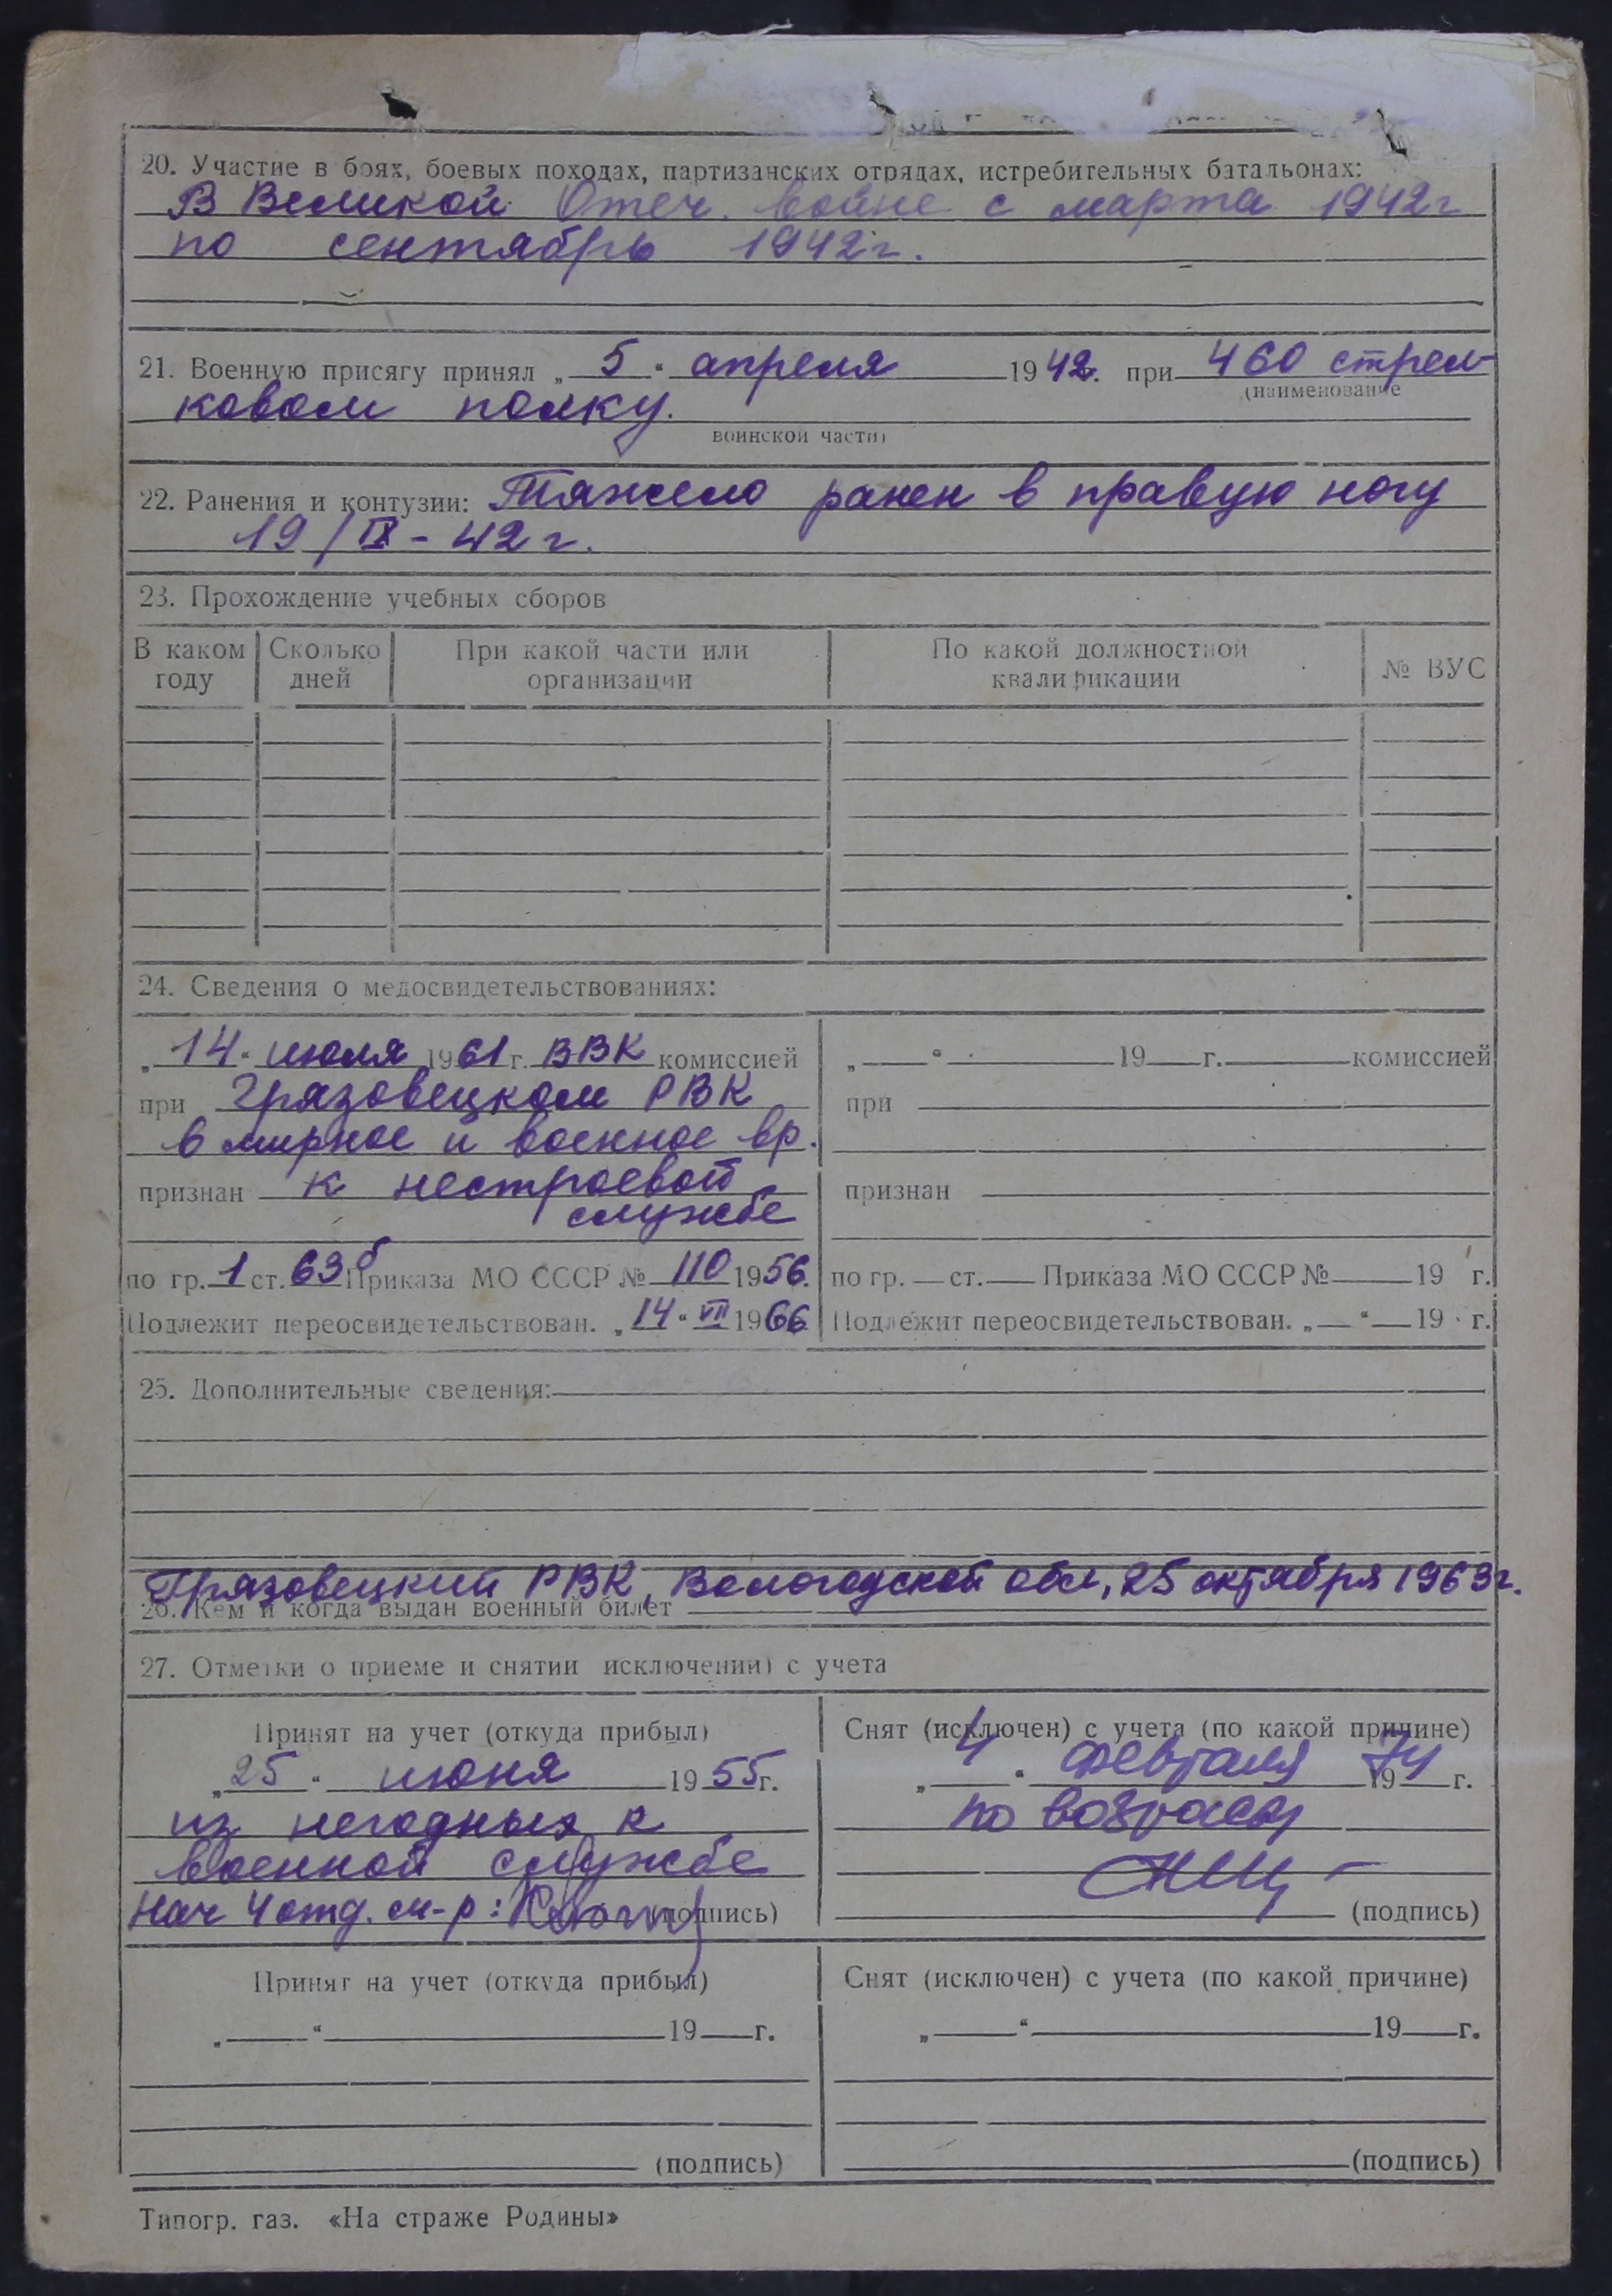 20. Участие в боях, боевых походах, партизанских отрядах, истребительных батальонах:
В Великой Отеч. войне с марта 1942г
по сентябрь 1942г.
21. Военную присягу принял „ 5 “ апреля 1942. при 460 стрел-
(наименование
ковом полку.
воинской части)
22. Ранения и контузии: Тяжело ранен в правую ногу
19/IX - 42 г.
23. Прохождение учебных сборов
В каком году Сколько дней При какой части или организации По какой должностной квалификации № ВУС
24. Сведения о медосвидетельствованиях:
„ 14 “ июля 1961 г. ВВК комиссией
при Грязовецком РВК
в мирное и военное вр.
признан к нестроевой
службе
по гр. 1 ст. 63б Приказа МО СССР № 110 1956.
Подлежит переосвидетельствован. „ 14 “ VII 1966
„ “ 19 г. комиссией
при
признан
по гр. ст. Приказа МО СССР № 19 г.
Подлежит переосвидетельствован. „ “ 19 г.
25. Дополнительные сведения:
Грязовецкий РВК, Вологодской обл, 25 октября 1963г.
26. Кем и когда выдан военный билет
27. Отметки о приеме и снятии исключении) с учета
Принят на учет (откуда прибыл)
„ 25 “ июня 1955г.
из негодных к
военной службе
Нач 4 отд. м-р: (подпись)
Снят (исключен) с учета (по какой причине)
„ 4 “ февраля 1974 г.
по возрасту
(подпись)
Принят на учет (откуда прибыл)
„ “ 19 г.
(подпись)
Снят (исключен) с учета (по какой причине)
„ “ 19 г.
(подпись)
Типогр. газ. «На страже Родины»